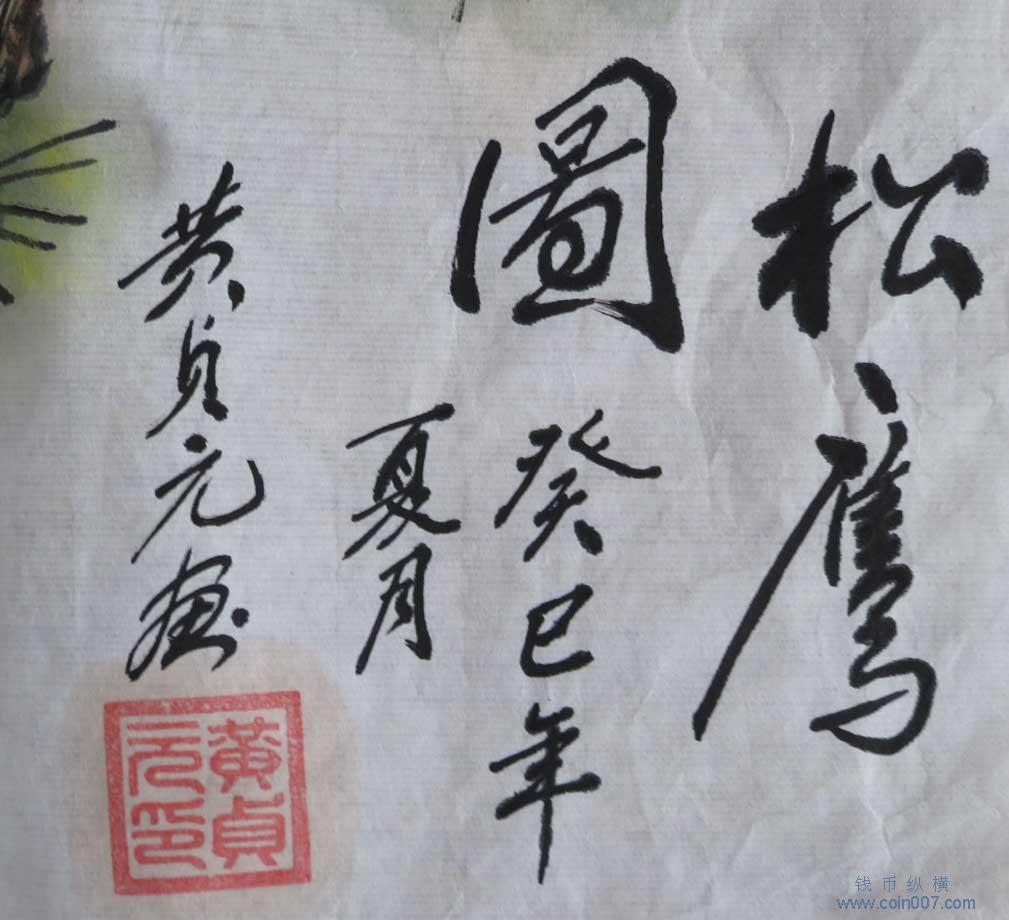 松鹰
圖
癸巳年
夏月
黄貞元画
黄貞
元印
钱币纵横
www.coin007.com